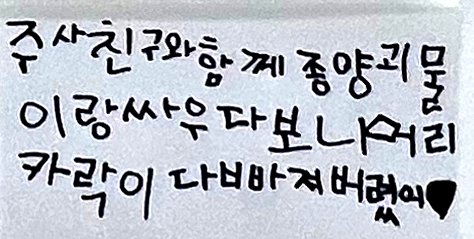 주사친구와함께종양괴물
이랑싸우다보니머리
카락이다빠져버렸어♥